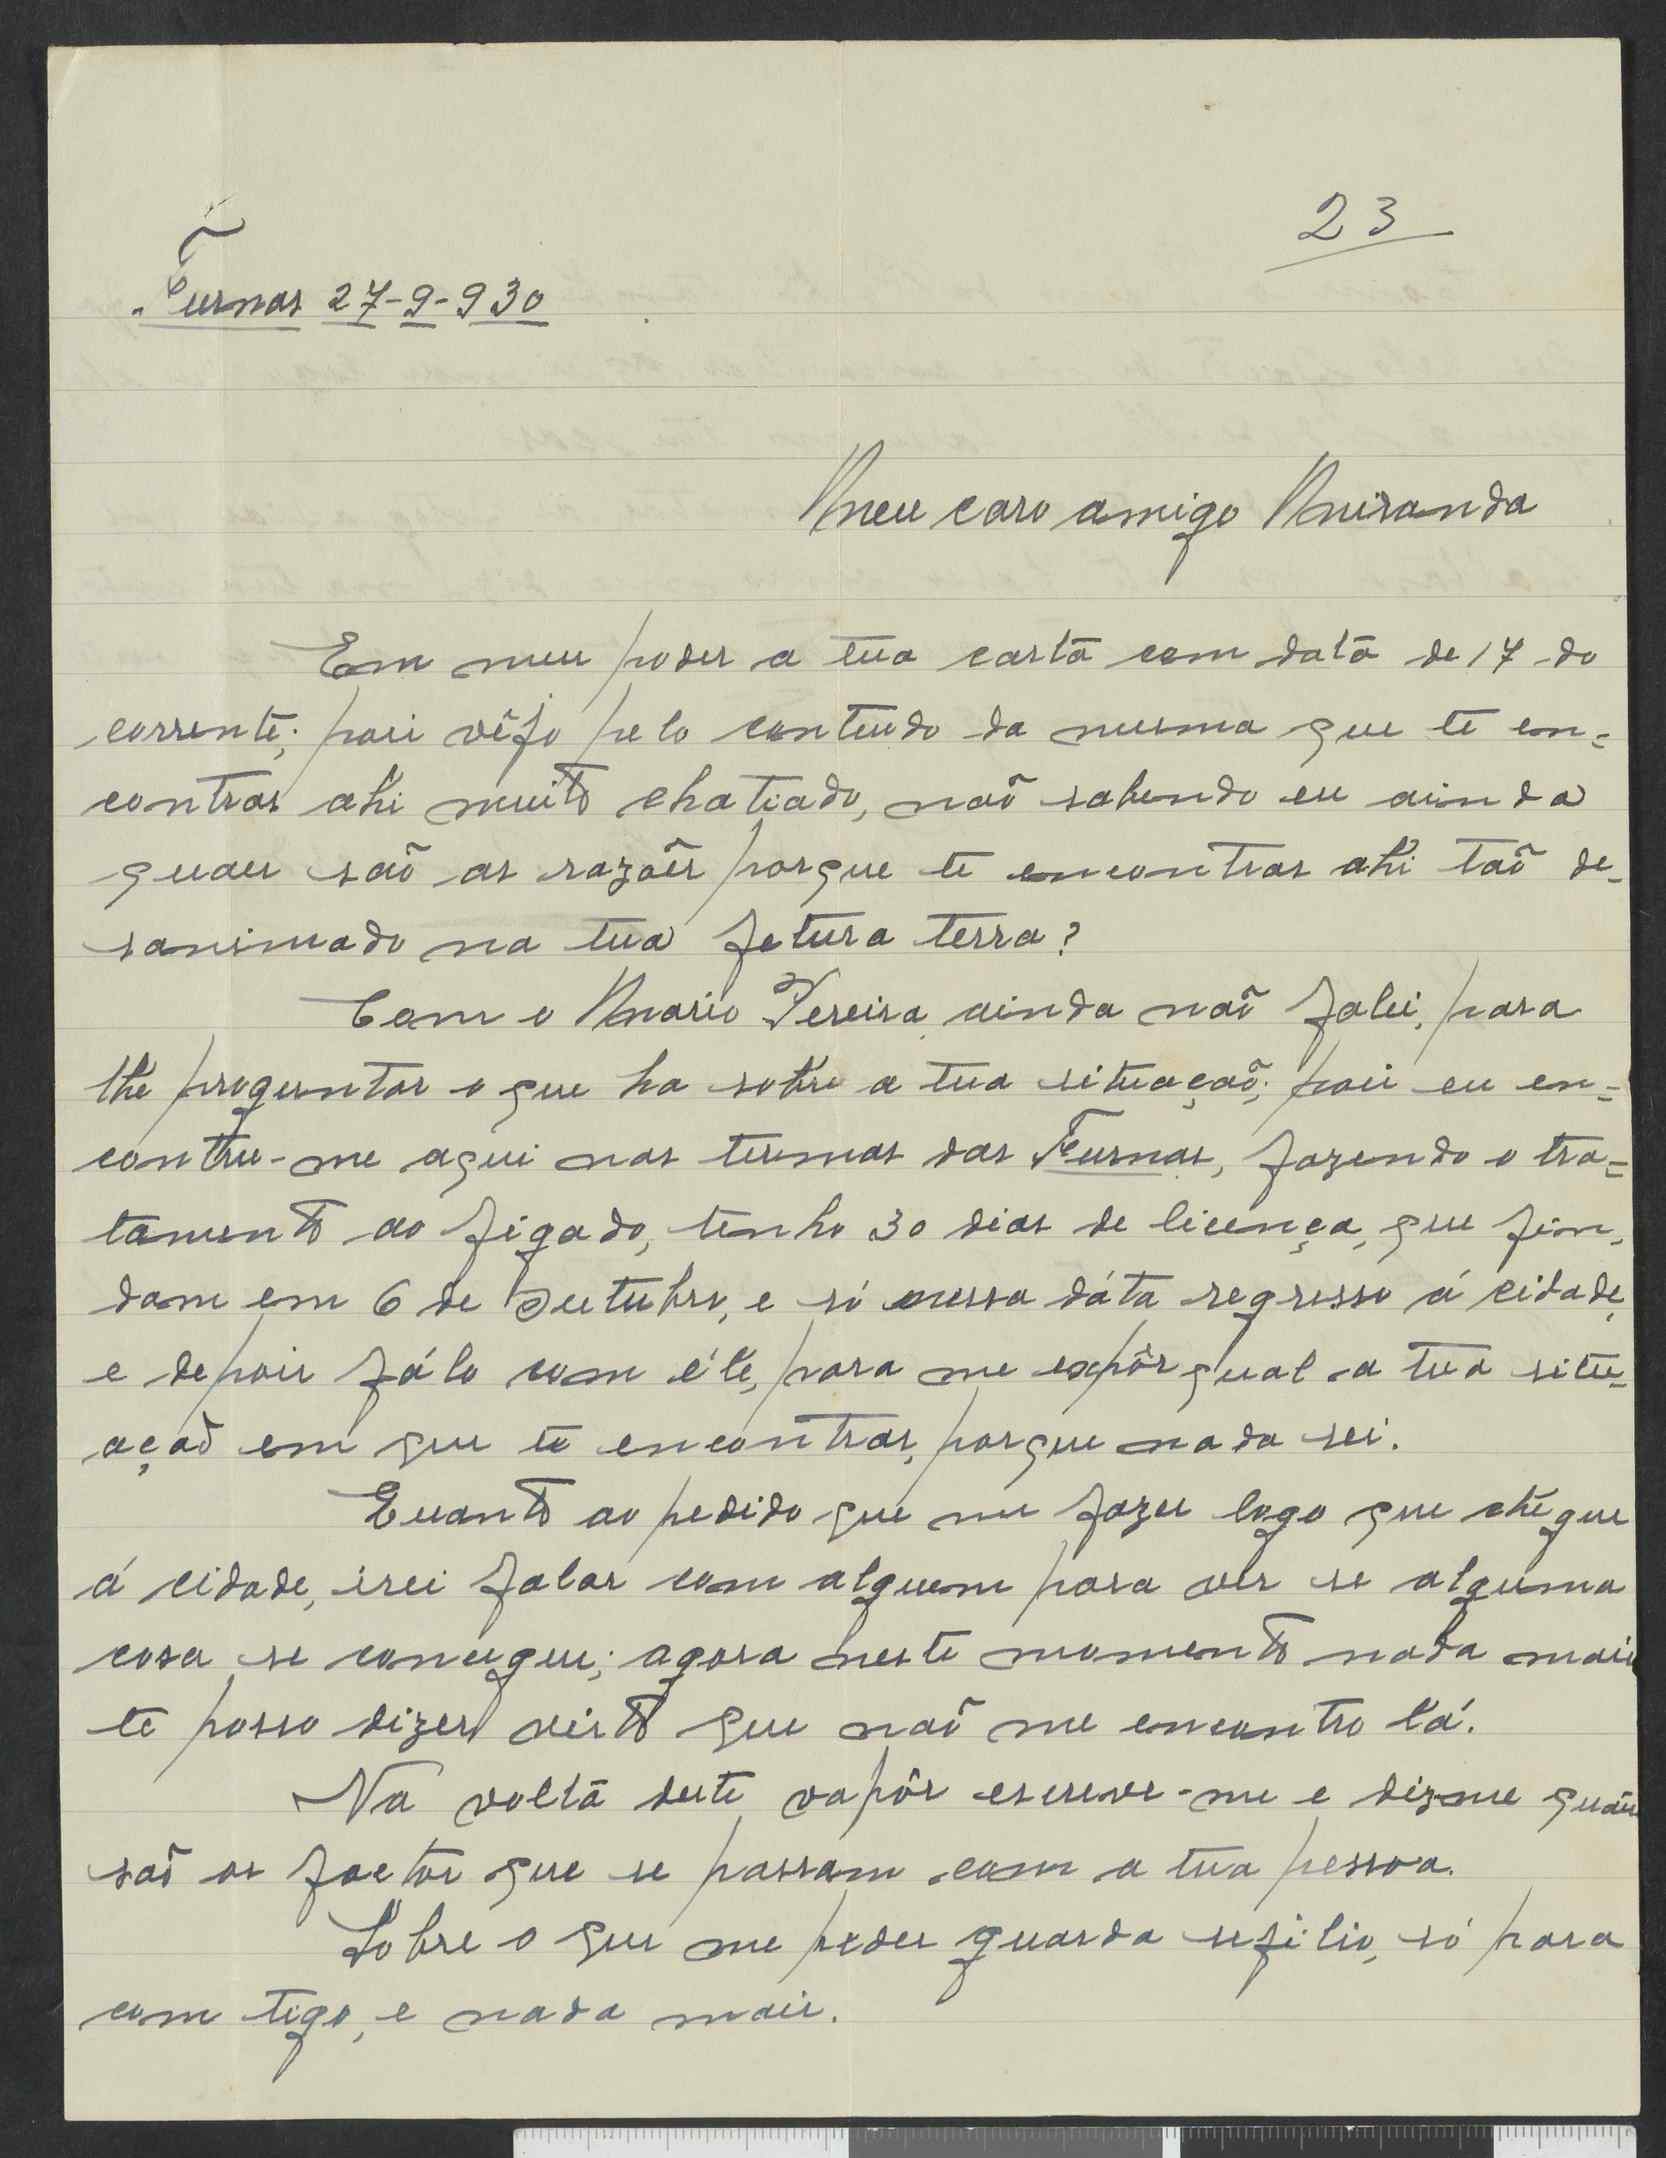 23
Furnas 27-9-930
Meu caro amigo Miranda
Em meu poder a tua carta com data de 17 do
corrente; pois vêjo pelo conteudo da mesma que te en=
contras ahi muito chatiado, naõ sabendo eu ainda
quaes saõ as razões porque te encontras ahi taõ de-
sanimado na tua fetura terra?
Com o Mario Pereira ainda naõ falei, para
lhe proguntar o que ha sobre a tua situaçaõ; pois eu en=
contru-me aqui nas termas das Furnas, fazendo o tra=
tamento ao figado, tenho 30 dias de licença, que fin-
dam em 6 de Outubro, e só nessa dáta regresso á cidade,
e depois fálo com éle, para me expôr qual a tua situ=
açaõ em que te encontras, porque nada sei.
Quanto ao pedido que me fazes logo que chegue
á cidade, irei falar com alguem para ver se alguma
cosa se conségue; agora neste momento nada mais
te posso dizer visto que naõ me encontro lá.
Na volta deste vapôr escreve-me e diz-me quáes
saõ os factos que se passam com a tua pessoa.
Sobre o que me pedes guarda sifilio, só para
com tigo, e nada mais.